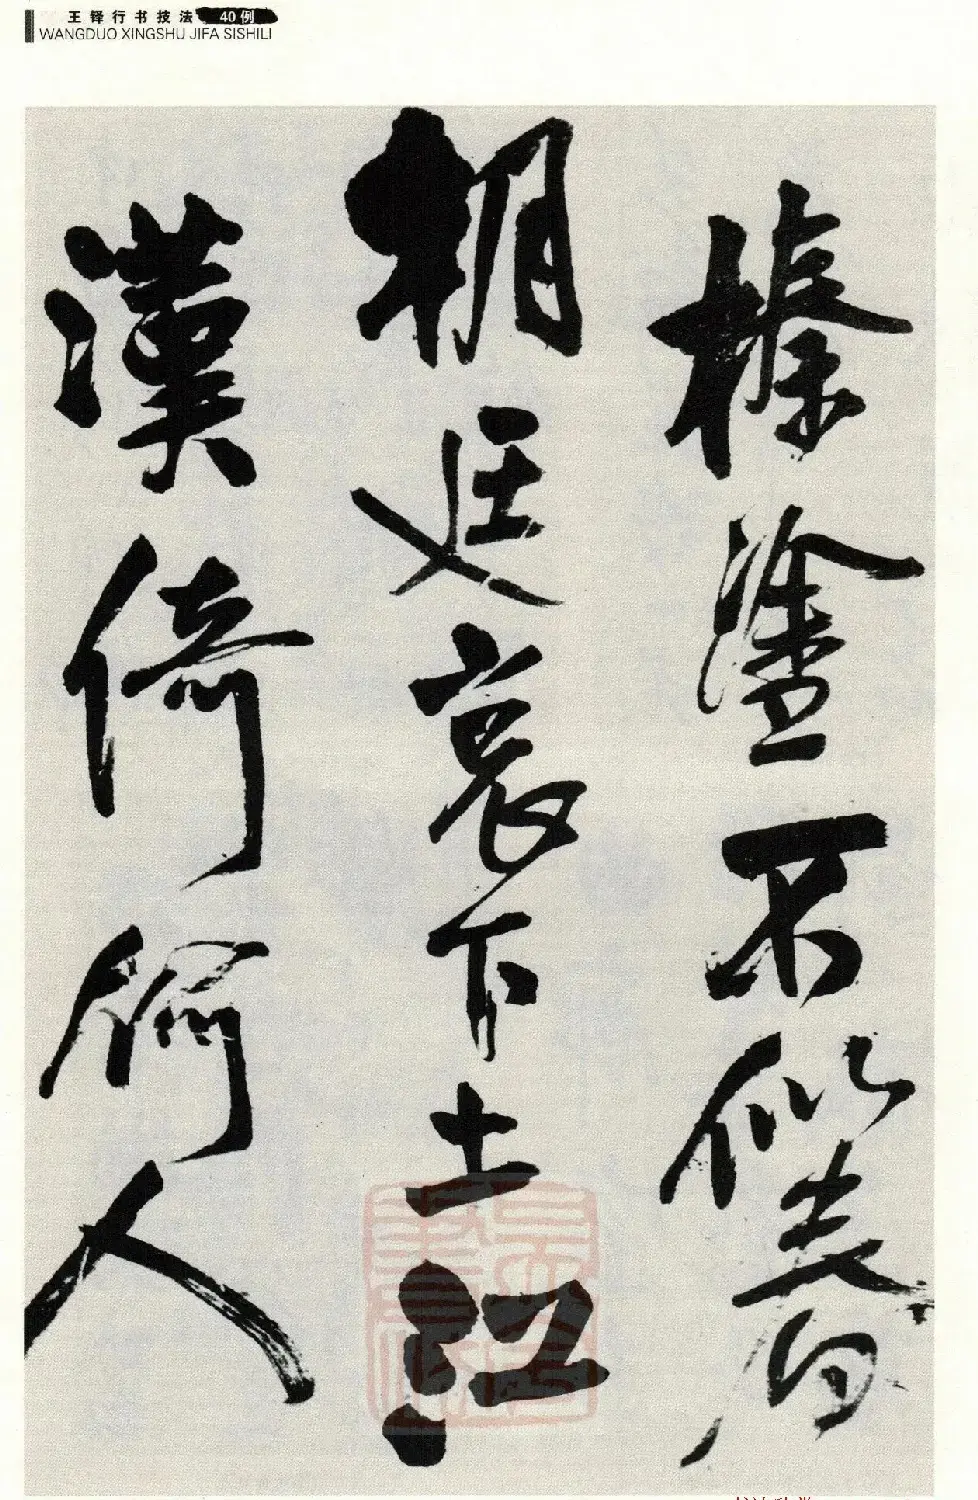 王铎行书技法40例
WANGDUO XINGSHU JIFA SISHILI
榛塗不似昔
朝廷哀下士江
漢倚何人